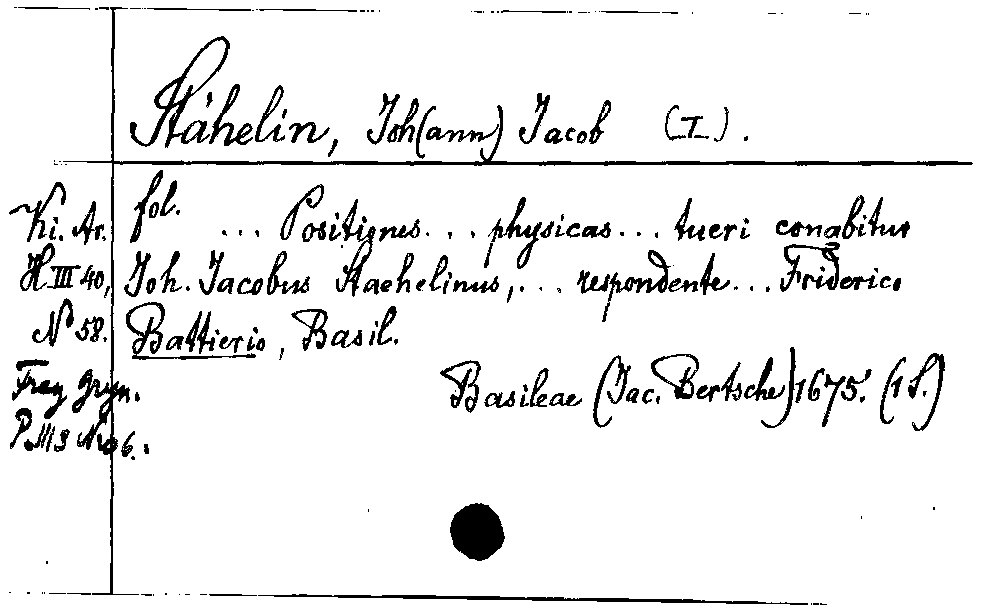 Stähelin, Joh(ann) Jacob (I).
Ki. Ar. fol. ... Positiones ... physicas ... tueri conabitur
H III 40, Joh. Jacobus Staehelinus, ... respondente ... Friderico
No 58. Battierio, Basil.
Frey Gryn. Basileae (Jac. Bertsche) 1675. (1 S.)
No 6.